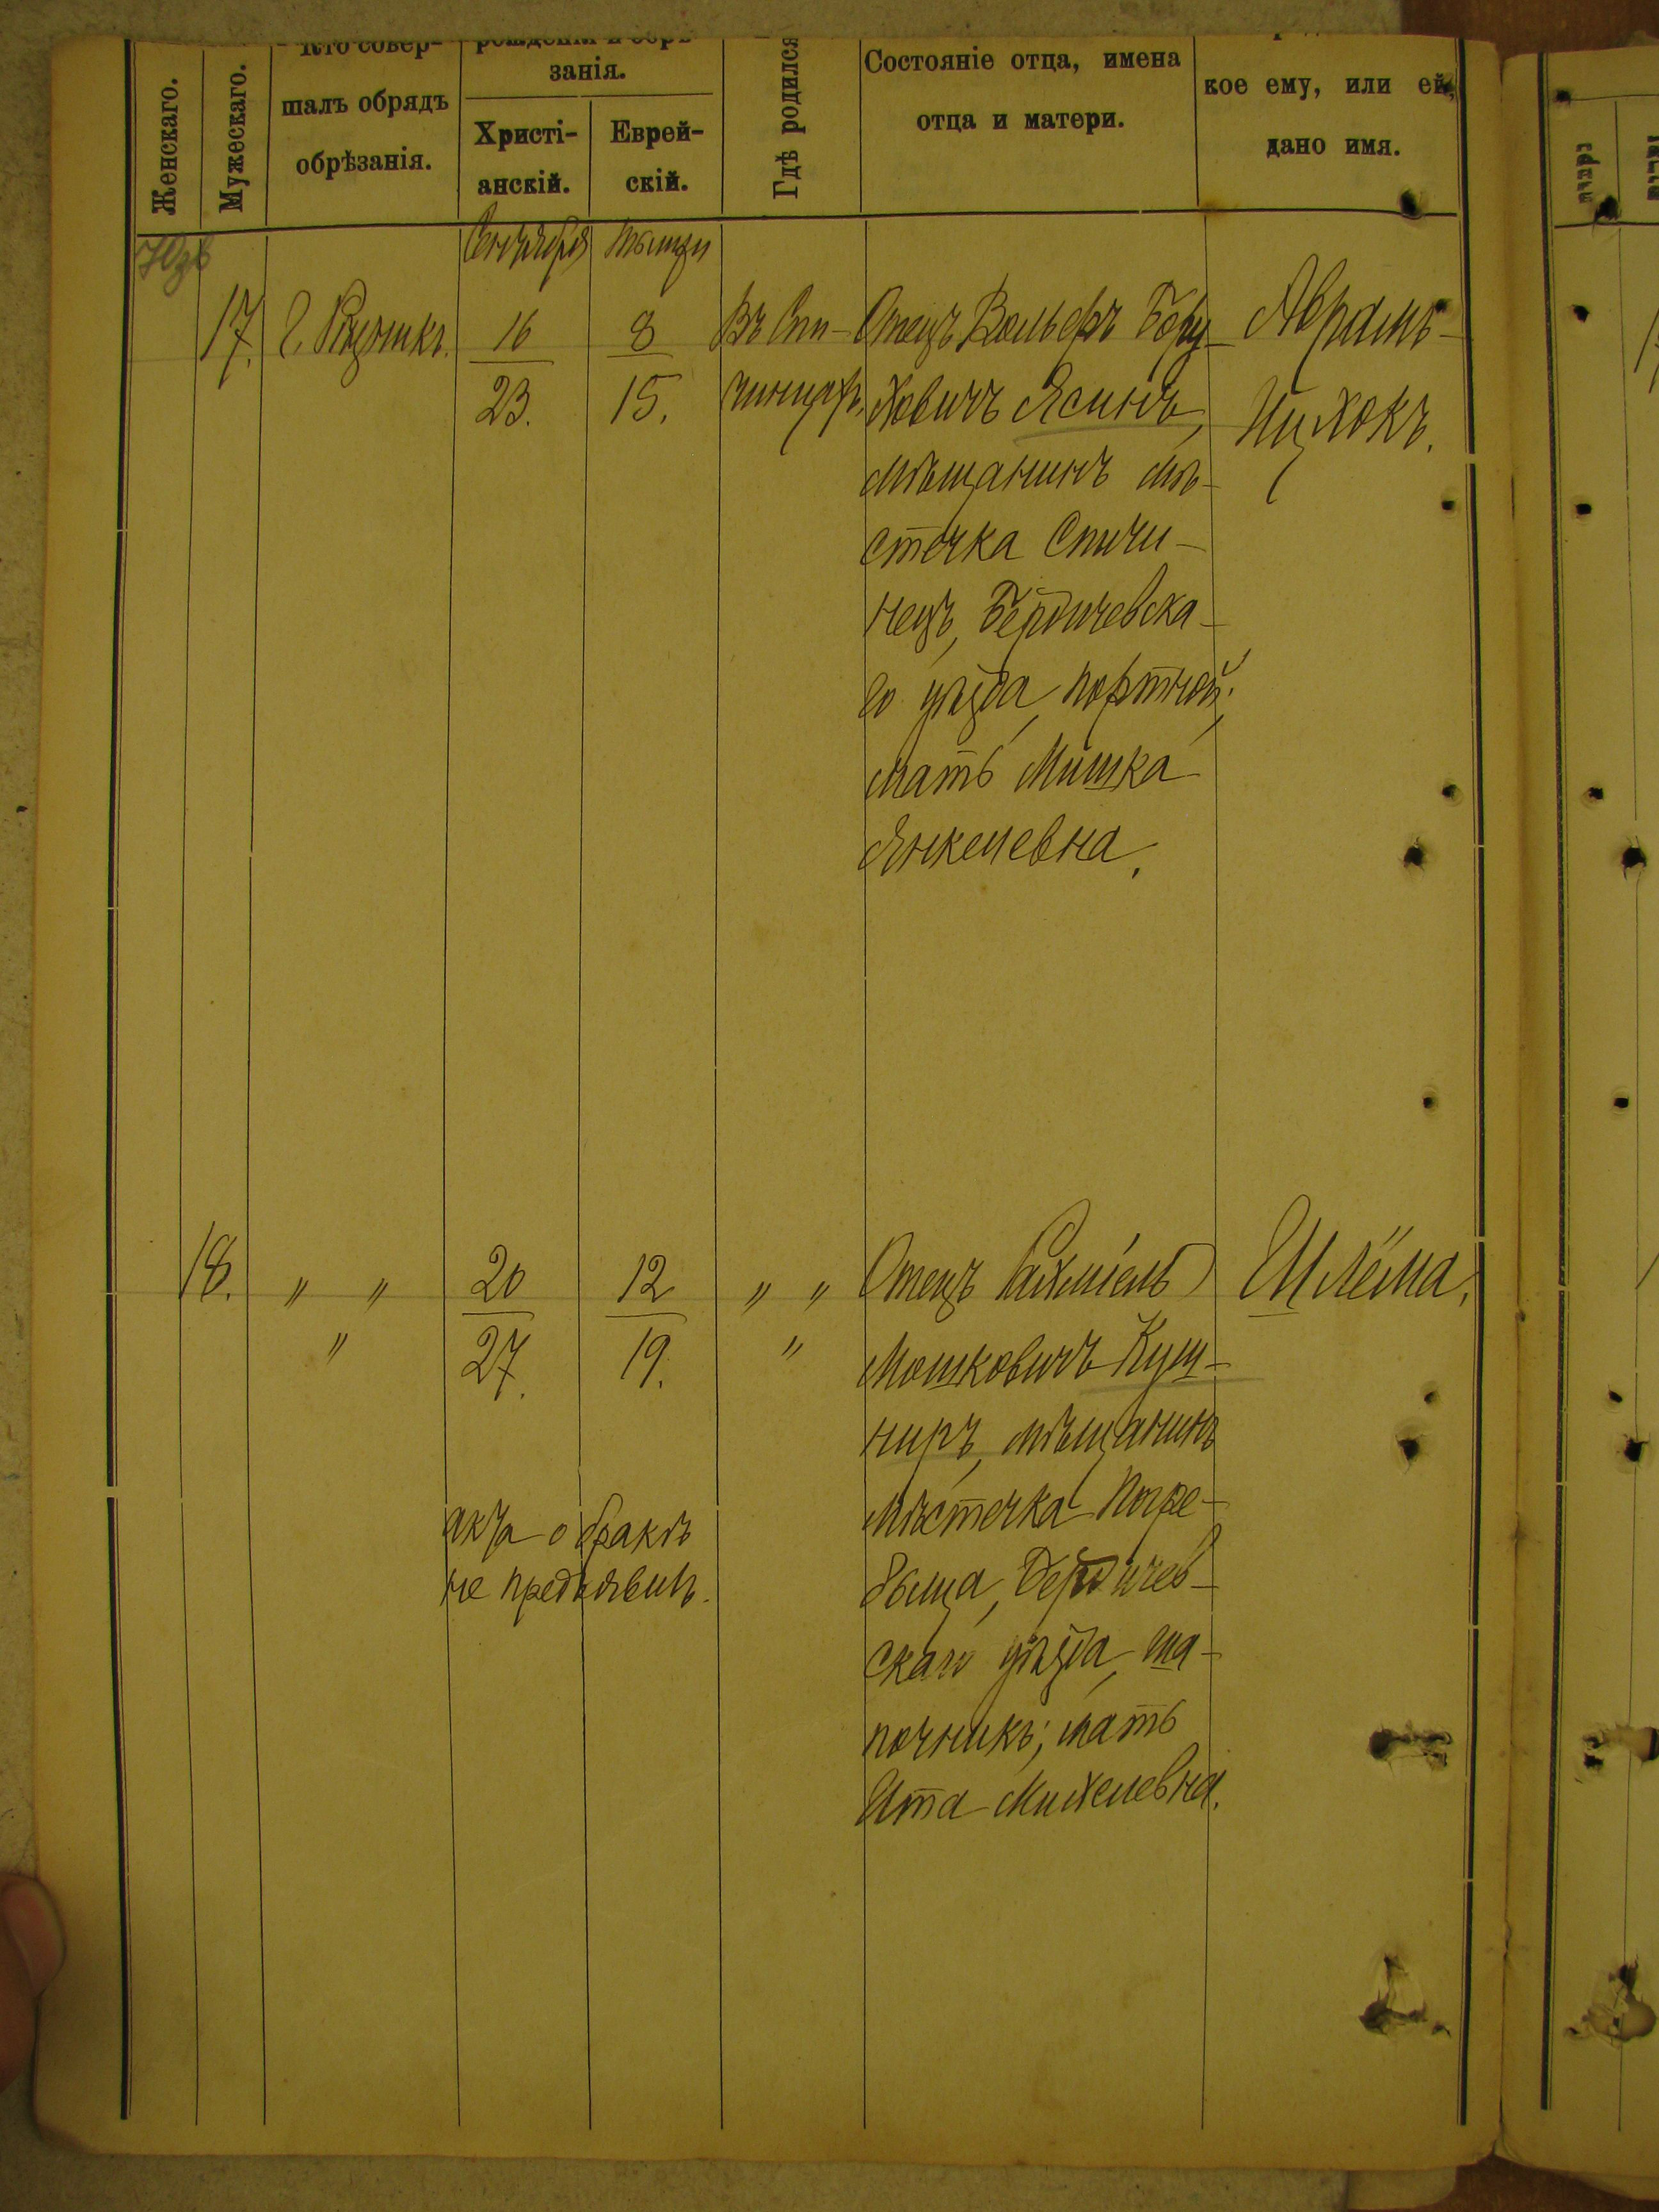 Женскаго.
Мужескаго.
Кто совер-
шалъ обрядъ
обрѣзанія.
рожденія и обрѣ-
занія.
Христі-
анскій.
Еврей-
скій.
Гдѣ родился
Состояніе отца, имена
отца и матери.
кое ему, или ей,
дано имя.
Сентября
Тышри
17.
16
23.
8
15.
Въ Спи-
чинцахъ.
Отецъ Вольфъ Бору-
ховичъ Ясинъ,
мѣщанинъ мѣ-
стечка Спичи-
нецъ, Бердичевска-
го уѣзда, портной;
мать Мишка
Янкелевна.
Аврамъ-
Ицхокъ.
18.
" "
"
20
27.
12
19.
" "
"
акта о бракѣ
не предъявилъ.
Отецъ Рахміель
Мошковичъ Куш-
ниръ, мѣщанинъ
мѣстечка Погре-
бища, Бердичев-
скаго уѣзда, ша-
почникъ; мать
Ита Михелевна.
Шлёма.